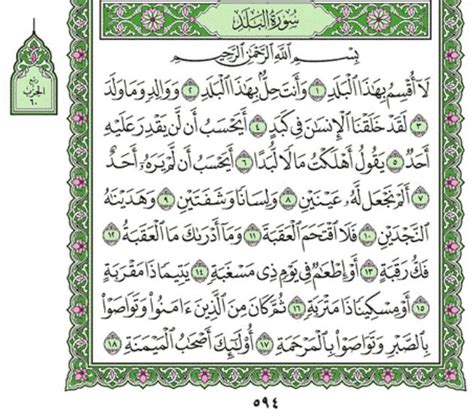 سُورَةُ البَلَدِ
بِسْمِ اللَّهِ الرَّحْمَٰنِ الرَّحِيمِ
ربع
الحزب
٦٠
لَا أُقْسِمُ بِهَٰذَا الْبَلَدِ ١ وَأَنتَ حِلٌّ بِهَٰذَا الْبَلَدِ ٢ وَوَالِدٍ وَمَا وَلَدَ
٣ لَقَدْ خَلَقْنَا الْإِنسَٰنَ فِي كَبَدٍ ٤ أَيَحْسَبُ أَن لَّن يَقْدِرَ عَلَيْهِ
أَحَدٌ ٥ يَقُولُ أَهْلَكْتُ مَالًا لُّبَدًا ٦ أَيَحْسَبُ أَن لَّمْ يَرَهُۥ أَحَدٌ
٧ أَلَمْ نَجْعَل لَّهُۥ عَيْنَيْنِ ٨ وَلِسَانًا وَشَفَتَيْنِ ٩ وَهَدَيْنَٰهُ
النَّجْدَيْنِ ١٠ فَلَا اقْتَحَمَ الْعَقَبَةَ ١١ وَمَا أَدْرَىٰكَ مَا الْعَقَبَةُ ١٢
فَكُّ رَقَبَةٍ ١٣ أَوْ إِطْعَٰمٌ فِي يَوْمٍ ذِي مَسْغَبَةٍ ١٤ يَتِيمًا ذَا مَقْرَبَةٍ
١٥ أَوْ مِسْكِينًا ذَا مَتْرَبَةٍ ١٦ ثُمَّ كَانَ مِنَ الَّذِينَ ءَامَنُوا وَتَوَاصَوْا
بِالصَّبْرِ وَتَوَاصَوْا بِالْمَرْحَمَةِ ١٧ أُولَٰئِكَ أَصْحَٰبُ الْمَيْمَنَةِ ١٨
٥٩٤